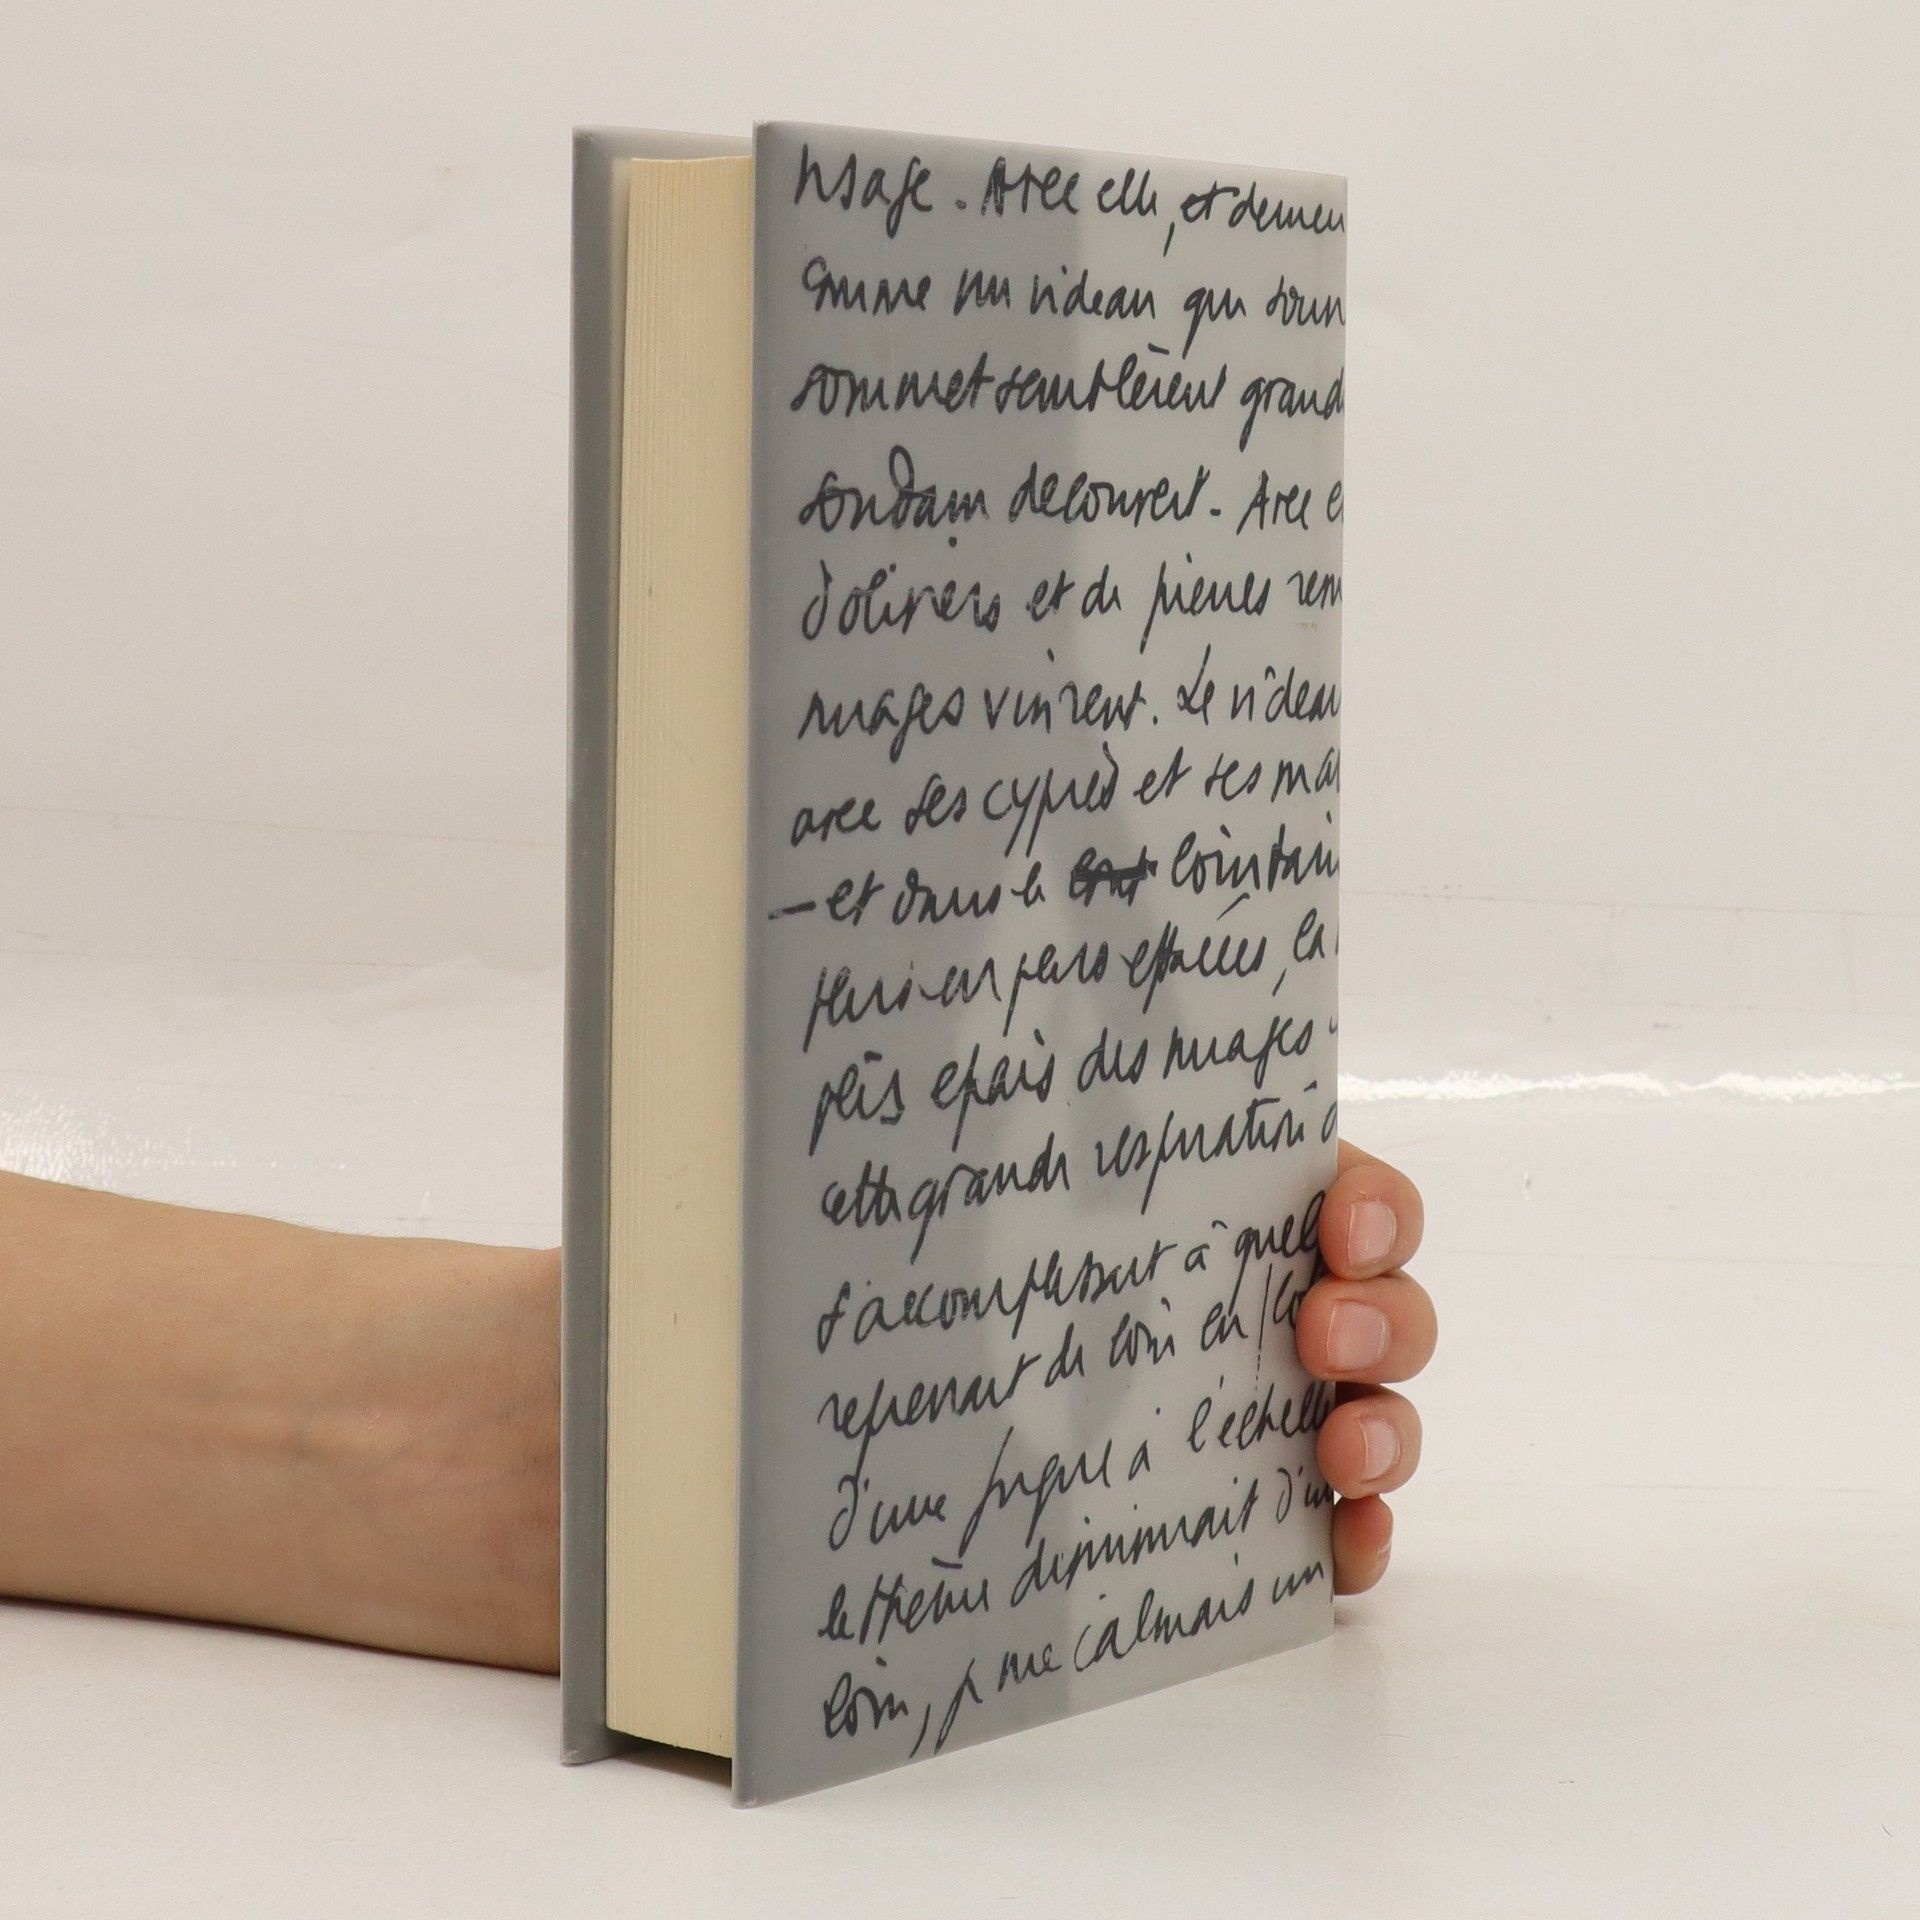 visage. Avec elle, et derrièr
comme un rideau qui s'ouv
sommet semblèrent grand
soudain découvert. Avec e
d'oliviers et de pierres
nuages vinrent. Le rideau
avec ses cyprès et ses ma
— et dans le lointain
peu en peu effacées, la
plis épais des nuages
cette grande respiration d
s'accomplissait à quelq
reprenait de loin en lo
d'une fugue à l'échelle
le thème diminuait d'un
loin, je me calmais un